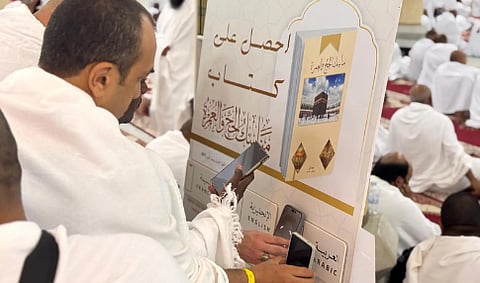 احصل على
كتاب
مناسك الحج والعمرة
مناسك الحج والعمرة
الإنجليزية
ENGLISH
العربية
ARABIC